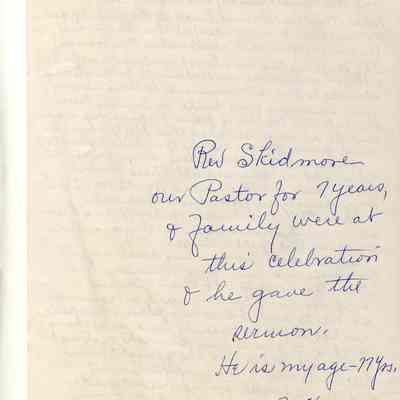 Rev Skidmore
our Pastor for 7 years,
& family were at
this celebration
& he gave the
sermon.
He is my age - 77 yrs.